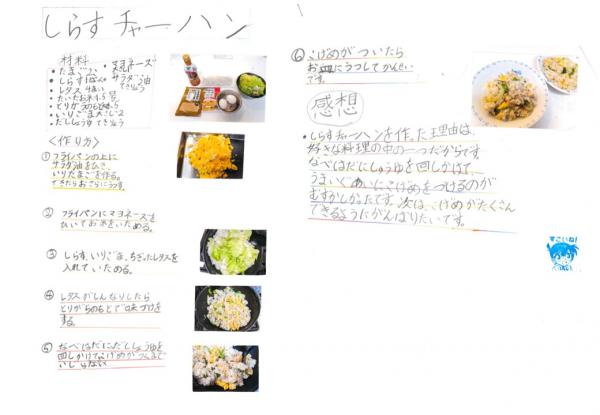 しらすチャーハン
材料
・たまご
・しらす
・レタス 4まい
・たいたお米
・とりがらのもと
・いりごま 大さじ2
・だししょうゆ てきりょう
・マヨネーズ
サラダ油
てきりょう
〈作り方〉
①フライパンの上に
サラダ油をひき、
いりたまごを作る。
できたらおさらにうつす。
②フライパンにマヨネーズを
ひいてお米をいためる。
③しらす、いりごま、ちぎったレタスを
入れていためる。
④レタスがしんなりしたら
とりがらのもとで味つけを
する。
⑤なべはだにだししょうゆを
回しかけてこげめがつくまで
いじらない
⑥こげめがついたら
お皿にうつしてかんせい
です。
感想
・しらすチャーハンを作った理由は、
好きな料理の中の一つだからです。
なべはだにしょうゆを回しかけて、
うまいぐあいにこげめをつけるのが
むずかしかったです。次は、こげめがたくさん
できるようにがんばりたいです。
すごいね!